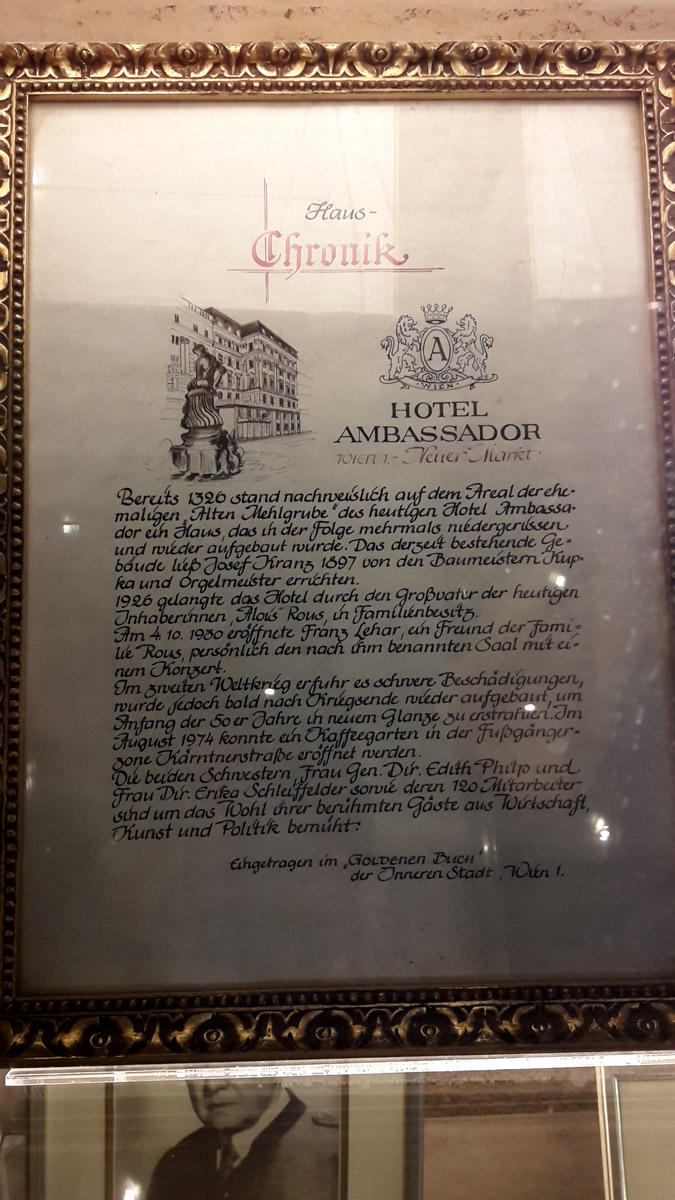 Haus-
Chronik
A
WIEN
HOTEL
AMBASSADOR
Wien 1.- Neuer Markt
Bereits 1326 stand nachweislich auf dem Areal der ehe-
maligen „Alten Mehlgrube" des heutigen Hotel Ambassa-
dor ein Haus, das in der Folge mehrmals niedergerissen
und wieder aufgebaut wurde. Das derzeit bestehende Ge-
bäude ließ Josef Kranz 1897 von den Baumeistern Kup-
ka und Orgelmeister errichten.
1926 gelangte das Hotel durch den Großvater der heutigen
Inhaberinnen, Alois Rous, in Familienbesitz.
Am 4.10. 1930 eröffnete Franz Lehar, ein Freund der Fami-
lie Rous, persönlich den nach ihm benannten Saal mit ei-
nem Konzert.
Im zweiten Weltkrieg erfuhr es schwere Beschädigungen,
wurde jedoch bald nach Kriegsende wieder aufgebaut, um
Anfang der 50er Jahre in neuem Glanze zu erstrahlen. Im
August 1974 konnte ein Kaffeegarten in der Fußgänger-
zone Kärntnerstraße eröffnet werden.
Die beiden Schwestern, Frau Gen. Dir. Edith Philp und
Frau Dir. Erika Schleiffelder sowie deren 120 Mitarbeiter
sind um das Wohl ihrer berühmten Gäste aus Wirtschaft,
Kunst und Politik bemüht.
Eingetragen im „GOLDENEN BUCH"
der Inneren Stadt, Wien 1.